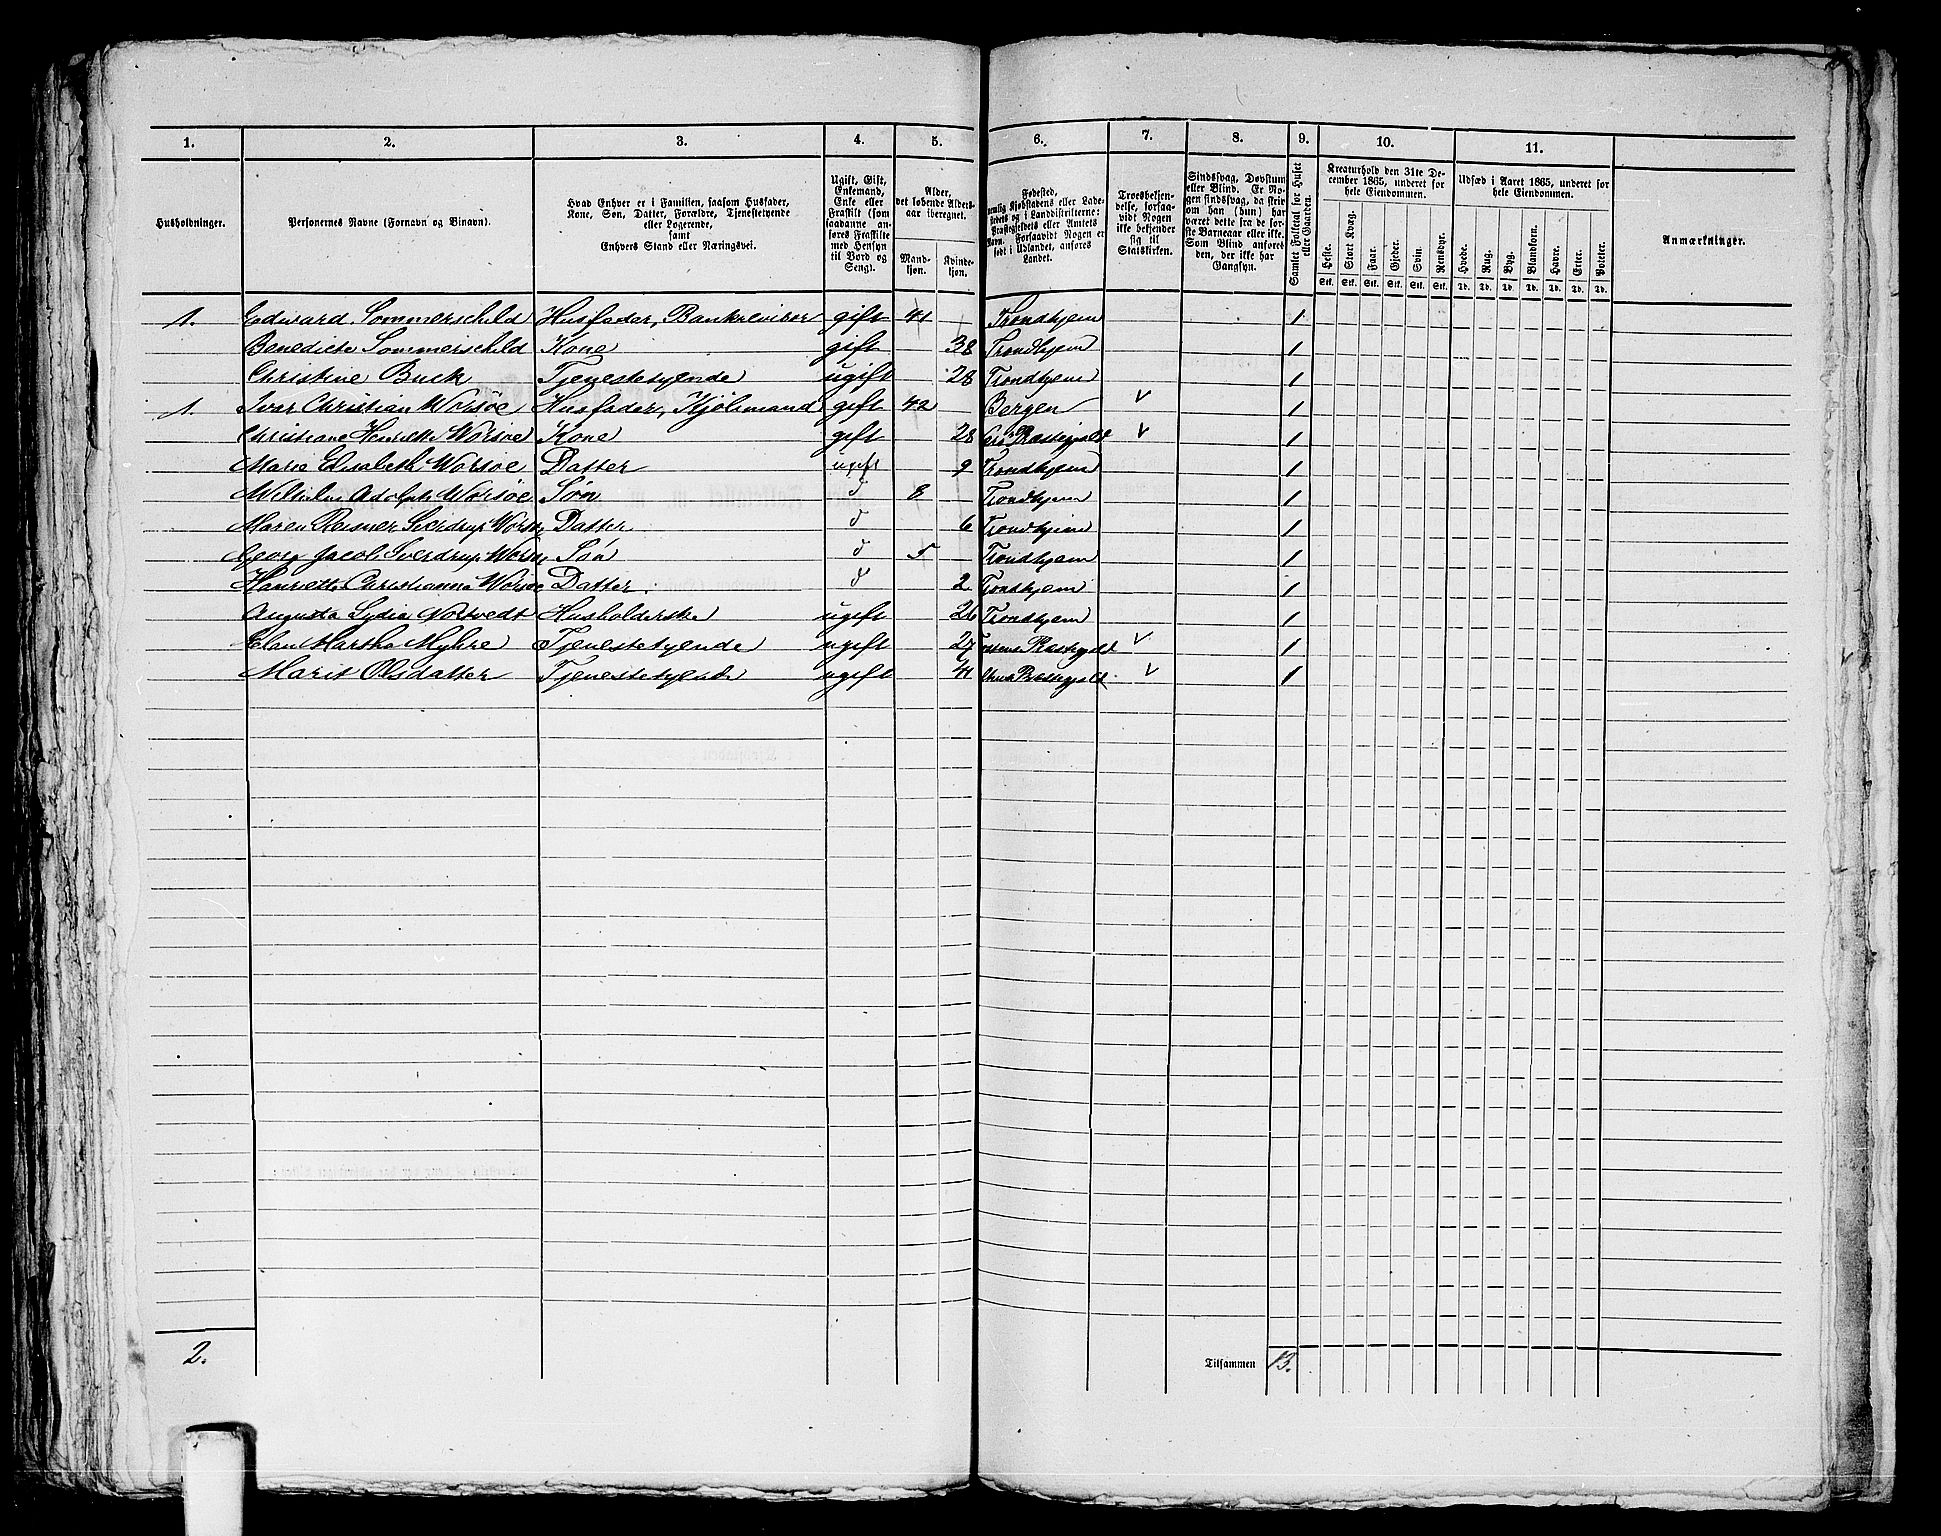 1. 2. 3. 4. 5. 6. 7. 8. 9. 10. 11.
Husholdninger.
Personernes Navne (Fornavn og Binavn).
Hvad Enhver er i Familien, saasom Husfader,
Kone, Søn, Datter, Forældre, Tjenestetyende
eller Logerende,
samt
Enhvers Stand eller Næringsvei.
Ugift, Gift,
Enkemand,
Enke eller
Fraskilt (som
saadanne an-
føres Fraskilte
med Hensyn
til Bord og
Seng).
Alder,
det løbende Alders-
aar iberegnet.
Mand-
kjøn.
Kvinde-
kjøn.
Fødested,
nemlig Kjøbstadens eller Lade-
stedets og i Landdistrikterne:
Præstegjeldets eller Amtets
Navn. Forsaavidt Nogen er
født i Udlandet, anføres
Landet.
Troesbekjen-
delse, forsaa-
vidt Nogen
ikke bekjender
sig til
Statskirken.
Sindssvag, Døvstum
eller Blind. Er No-
gen sindssvag, da skriv
om han (hun) har
været dette fra de før-
ste Barneaar eller ikke.
Som Blind anføres
den, der ikke har
Gangsyn.
Samlet Folketal for Huset
eller Gaarden.
Kreaturhold den 31te De-
cember 1865, underet for
hele Eiendommen.
Heste. Stort Kvæg. Faar. Gjeder. Svin. Rensdyr.
Stk. Stk. Stk. Stk. Stk. Stk.
Udsæd i Aaret 1865, underet for
hele Eiendommen.
Hvede. Rug. Byg. Blandkorn. Havre. Erter. Poteter.
Td. Td. Td. Td. Td. Td. Td.
Anmærkninger.
1. Edward Sommerschild Husfader, Bankrevisor gift 41 Trondhjem 1
Benedicte Sommerschild Kone gift 38 Trondhjem 1
Christine Buck Tjenestetyende ugift 28 Trondhjem 1
1. Ivar Christian Worsøe Husfader, Kjøbmand gift 42 Bergen 1
Christiane Henriette Worsøe Kone gift 28 Præstegjeld 1
Marie Elisabeth Worsøe Datter ugift 9 Trondhjem 1
Wilhelm Adolph Worsøe Søn d 8 Trondhjem 1
Maren Reisner Sverdrup Worsøe Datter d 6 Trondhjem 1
Georg Jacob Sverdrup Worsøe Søn d 5 Trondhjem 1
Henriette Christianne Worsøe Datter. d 2 Trondhjem 1
Augusta Lydia Nortvedt Husholderske ugift 26 Trondhjem 1
Martha Myhre Tjenestetyende ugift 27 Præstegjeld 1
Marit Olsdatter Tjenestetyende ugift 41 Præstegjeld 1
2. Tilsammen 13.